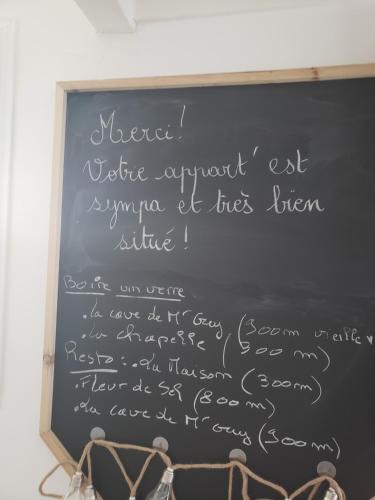 Merci!
Votre appart' est
sympa et très bien
situé!
Boire un verre
. La cave de Mr Guy (900m vieille v
. La chapelle (900 m)
Resto: . La Maison (300m)
. Fleur de Sel (800m)
. La cave de Mr Guy (900m)